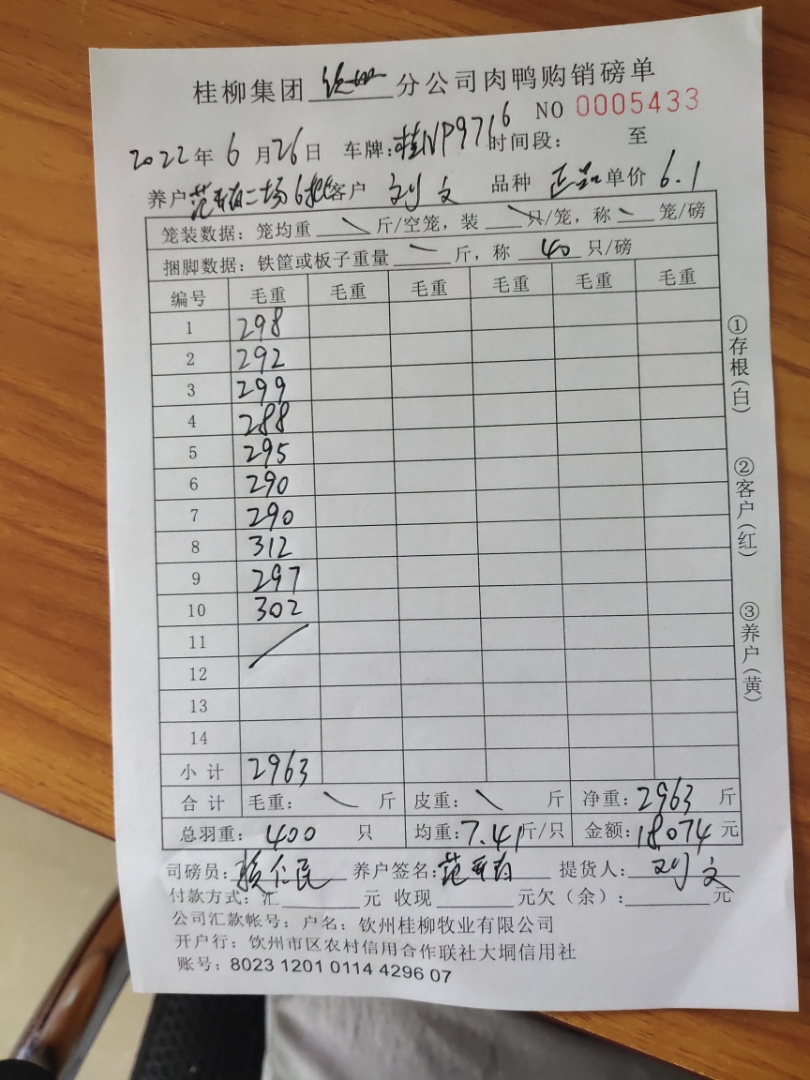 桂柳集团 钦州 分公司肉鸭购销磅单
NO 0005433
2022年6月26日 车牌:桂NP9716 时间段: 至
养户 范 二场6批 客户 刘文 品种 正品 单价 6.1
笼装数据:笼均重 斤/空笼,装 只/笼,称 笼/磅
捆脚数据:铁筐或板子重量 斤,称 40 只/磅
编号 毛重 毛重 毛重 毛重 毛重 毛重
1 298
2 292
3 299
4 288
5 295
6 290
7 290
8 312
9 297
10 302
11
12
13
14
小计 2963
合计 毛重: 斤 皮重: 斤 净重:2963 斤
总羽重:400 只 均重:7.41斤/只 金额:18074元
司磅员: 仁民 养户签名:范 提货人:刘文
付款方式:汇 元 收现 元欠(余): 元
公司汇款帐号:户名:钦州桂柳牧业有限公司
开户行:钦州市区农村信用合作联社大垌信用社
账号:8023 1201 0114 4296 07
①存根(白)
②客户(红)
③养户(黄)